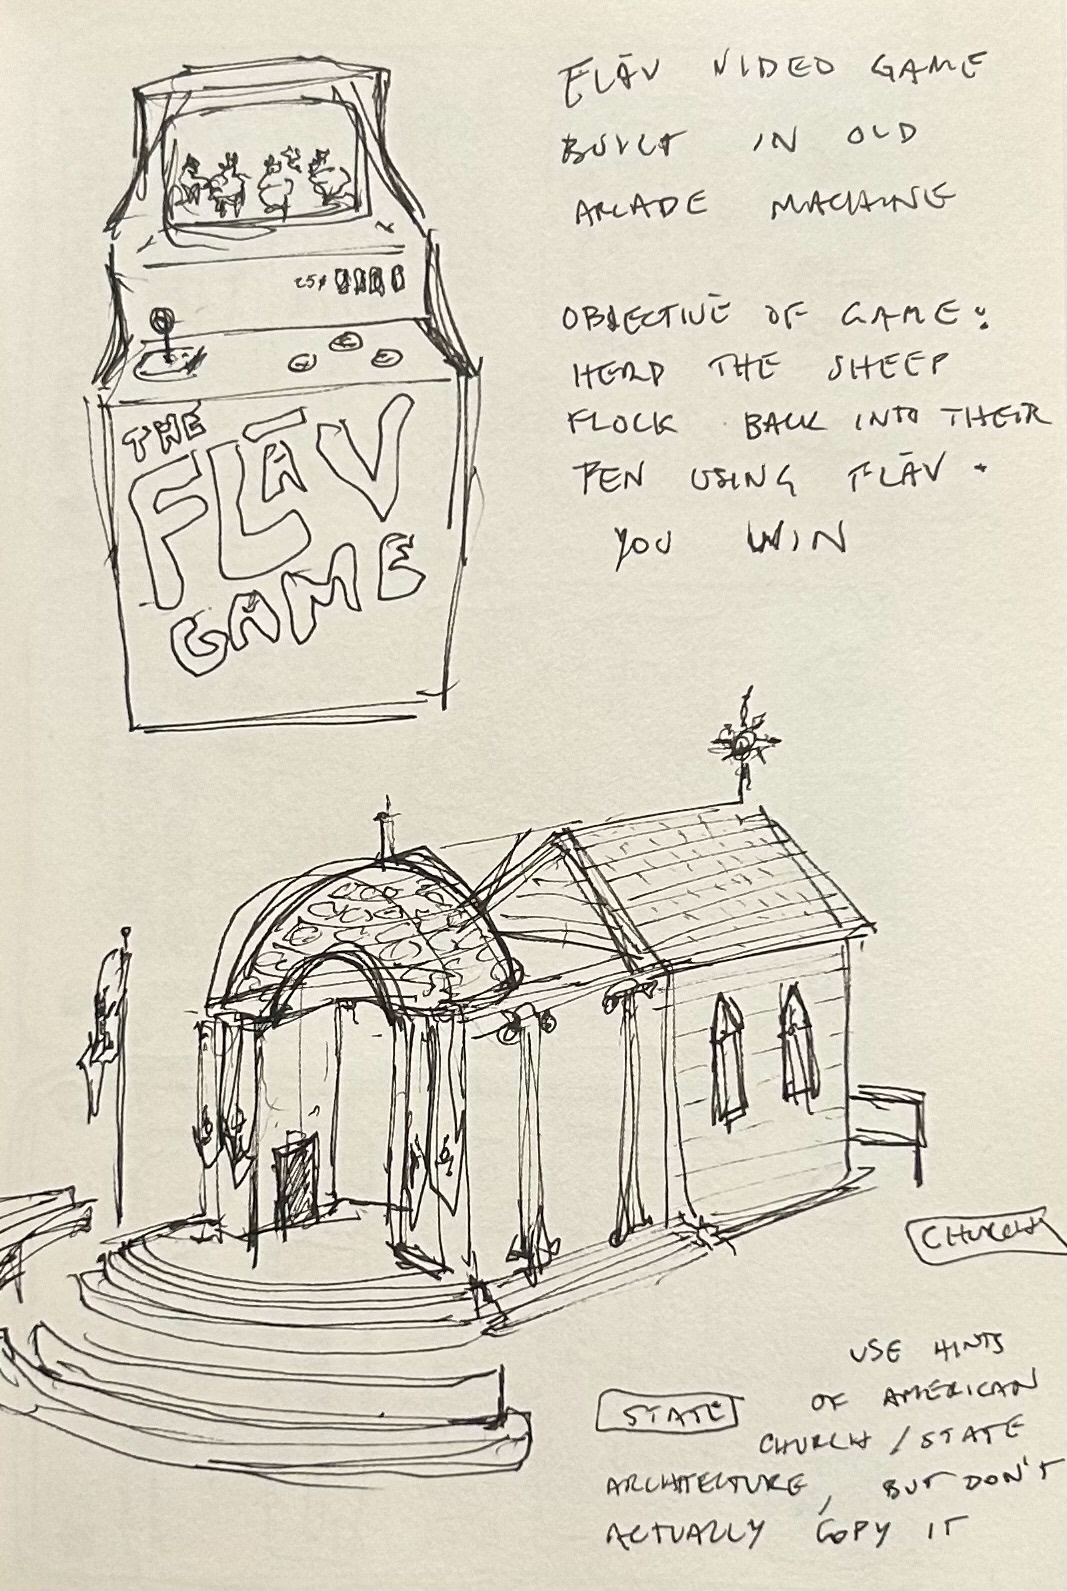 FLĀV VIDEO GAME
BUILT IN OLD
ARCADE MACHINE
OBJECTIVE OF GAME:
HERD THE SHEEP
FLOCK BACK INTO THEIR
PEN USING FLĀV.
YOU WIN
25¢
THE
FLĀV
GAME
CHURCH
STATE
USE HINTS
OF AMERICAN
CHURCH / STATE
ARCHITECTURE, BUT DON'T
ACTUALLY COPY IT